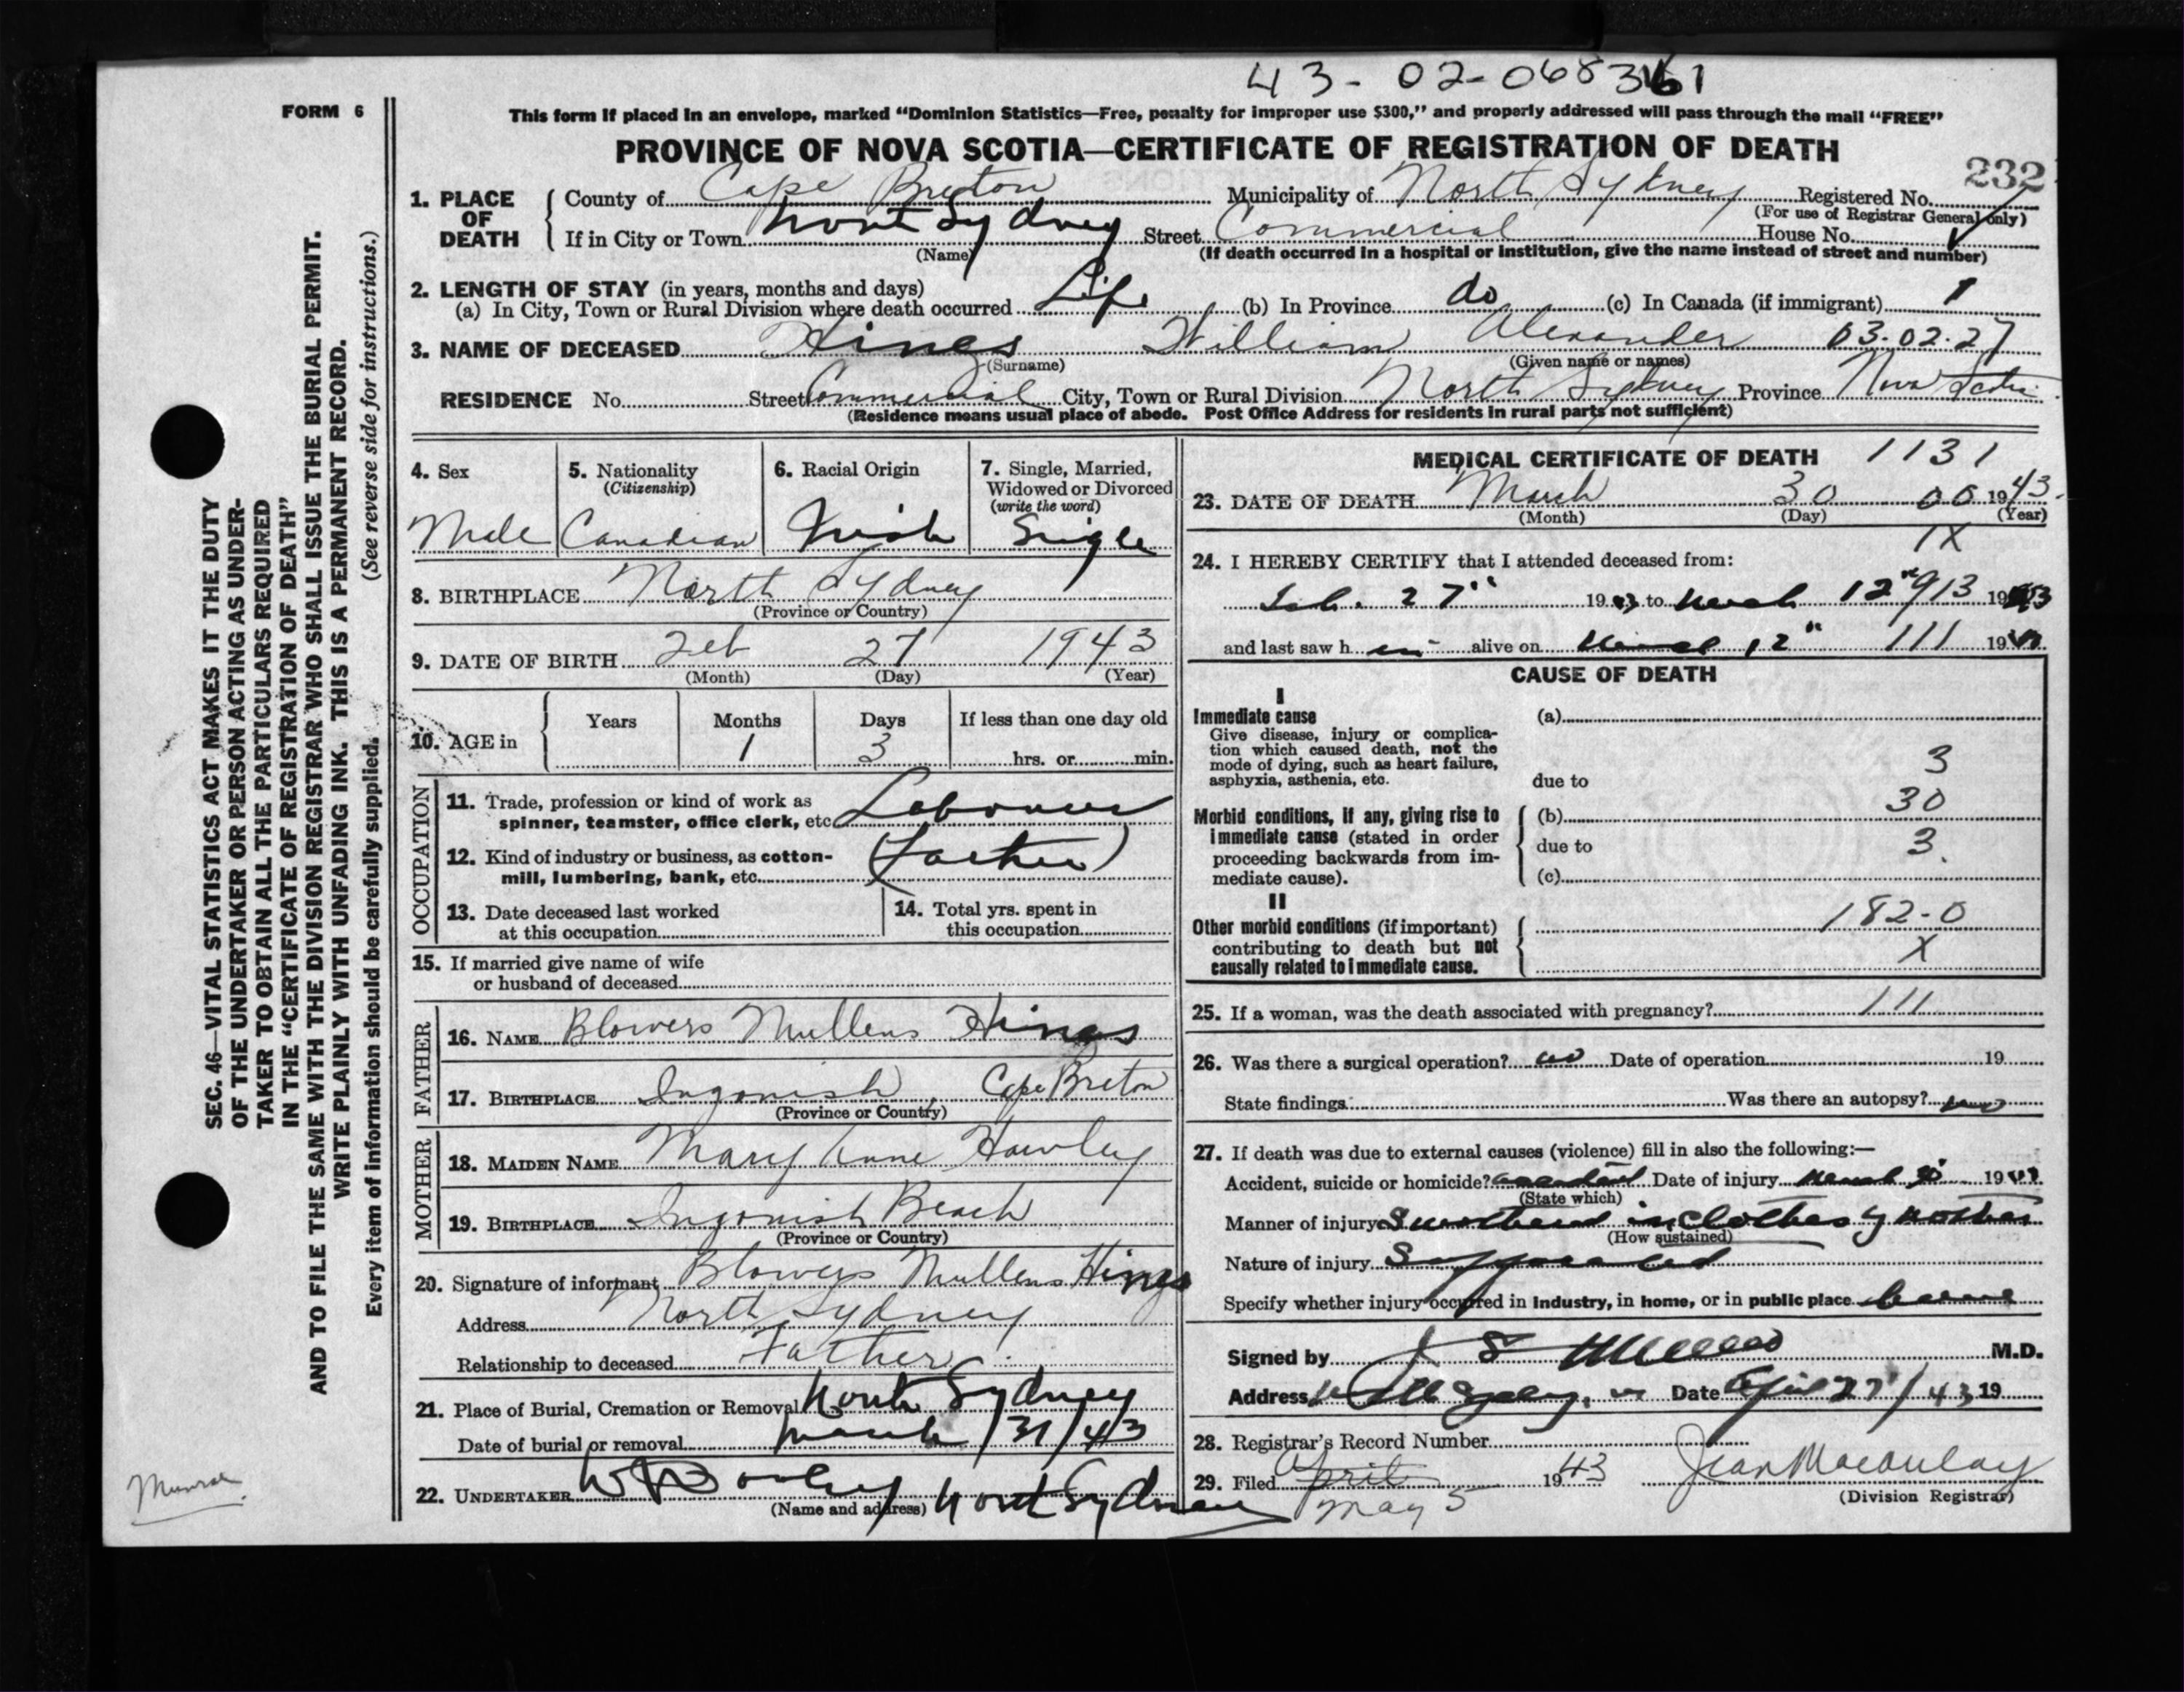 43-02-068361
FORM 6
This form if placed in an envelope, marked “Dominion Statistics—Free, penalty for improper use $300,” and properly addressed will pass through the mail “FREE”
PROVINCE OF NOVA SCOTIA—CERTIFICATE OF REGISTRATION OF DEATH
232
1. PLACE OF DEATH
County of Cape Breton Municipality of North Sydney Registered No.
(For use of Registrar General only)
If in City or Town North Sydney Street Commercial House No.
(Name) (If death occurred in a hospital or institution, give the name instead of street and number)
2. LENGTH OF STAY (in years, months and days)
(a) In City, Town or Rural Division where death occurred Life (b) In Province do (c) In Canada (if immigrant) 1
3. NAME OF DECEASED Hines William Alexander 03.02.27
(Surname) (Given name or names)
RESIDENCE No. Street Commercial City, Town or Rural Division North Sydney Province Nova Scotia
(Residence means usual place of abode. Post Office Address for residents in rural parts not sufficient)
4. Sex
Male
5. Nationality
(Citizenship)
Canadian
6. Racial Origin
Irish
7. Single, Married,
Widowed or Divorced
(write the word)
Single
8. BIRTHPLACE North Sydney
(Province or Country)
9. DATE OF BIRTH Feb 27 1943
(Month) (Day) (Year)
10. AGE in
Years Months Days If less than one day old
1 3 hrs. or min.
OCCUPATION
11. Trade, profession or kind of work as
spinner, teamster, office clerk, etc. Labourer
12. Kind of industry or business, as cotton-
mill, lumbering, bank, etc. (Father)
13. Date deceased last worked
at this occupation
14. Total yrs. spent in
this occupation
15. If married give name of wife
or husband of deceased
FATHER
16. NAME Blowers Mullens Hines
17. BIRTHPLACE Ingonish, Cape Breton
(Province or Country)
MOTHER
18. MAIDEN NAME Mary Anne Hawley
19. BIRTHPLACE Ingonish Beach
(Province or Country)
20. Signature of informant Blowers Mullens Hines
Address North Sydney
Relationship to deceased Father
21. Place of Burial, Cremation or Removal North Sydney
Date of burial or removal March/31/43
22. UNDERTAKER North Sydney
(Name and address)
MEDICAL CERTIFICATE OF DEATH 1131
23. DATE OF DEATH March 30 00 1943
(Month) (Day) (Year)
1X
24. I HEREBY CERTIFY that I attended deceased from:
Feb. 27" 1943 to March 12" 913 1943
and last saw h im alive on March 12" 111 19
CAUSE OF DEATH
I
Immediate cause
Give disease, injury or complica-
tion which caused death, not the
mode of dying, such as heart failure,
asphyxia, asthenia, etc.
(a)
due to 3
Morbid conditions, if any, giving rise to
immediate cause (stated in order
proceeding backwards from im-
mediate cause).
(b) 30
due to 3.
(c)
II
Other morbid conditions (if important)
contributing to death but not
causally related to immediate cause.
182-0
X
25. If a woman, was the death associated with pregnancy? 111
26. Was there a surgical operation? no Date of operation 19
State findings Was there an autopsy? no
27. If death was due to external causes (violence) fill in also the following:—
Accident, suicide or homicide? accident Date of injury March 30 1943
(State which)
Manner of injury Smothered in clothes by mother
(How sustained)
Nature of injury Suffocated
Specify whether injury occurred in industry, in home, or in public place home
Signed by M.D.
Address Date April 27/43 19
28. Registrar's Record Number
29. Filed April 1943 Jean Macaulay
May 5 (Division Registrar)
SEC. 46—VITAL STATISTICS ACT MAKES IT THE DUTY
OF THE UNDERTAKER OR PERSON ACTING AS UNDER-
TAKER TO OBTAIN ALL THE PARTICULARS REQUIRED
IN THE “CERTIFICATE OF REGISTRATION OF DEATH”
AND TO FILE THE SAME WITH THE DIVISION REGISTRAR WHO SHALL ISSUE THE BURIAL PERMIT.
WRITE PLAINLY WITH UNFADING INK. THIS IS A PERMANENT RECORD.
Every item of information should be carefully supplied. (See reverse side for instructions.)
Munroe